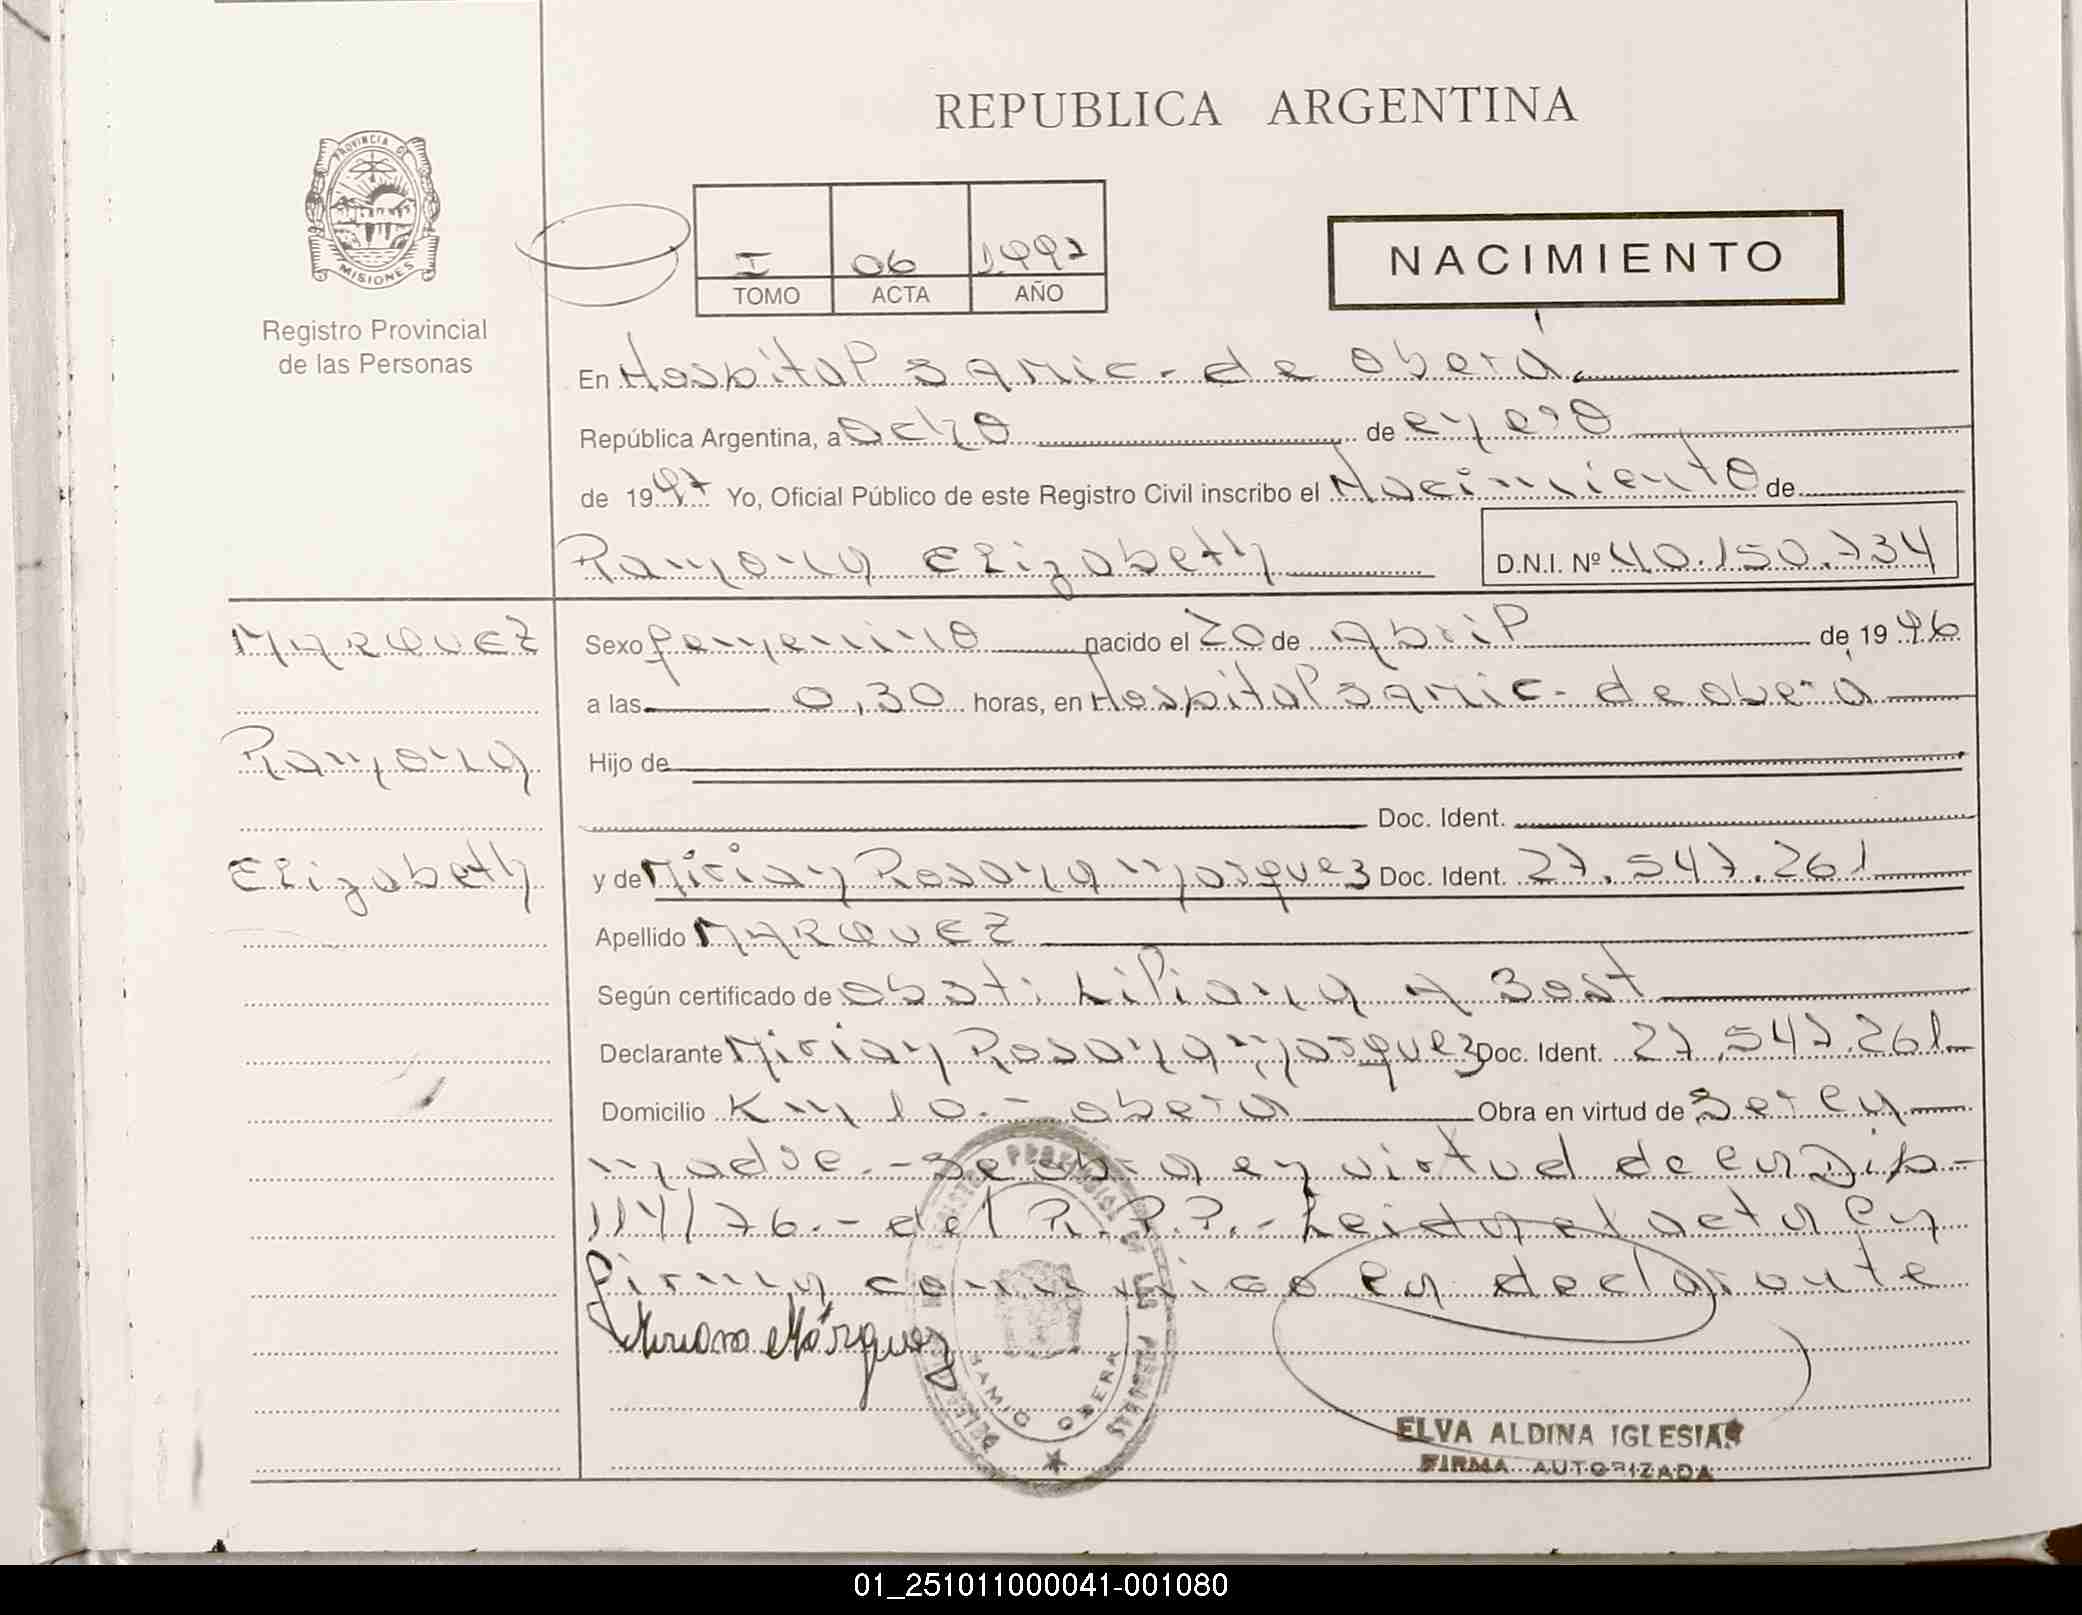 REPUBLICA ARGENTINA
PROVINCIA DE
MISIONES
Registro Provincial
de las Personas
I 06 1997
TOMO ACTA AÑO
NACIMIENTO
En Hospital SAMIC - de Oberá.
República Argentina, a ocho de enero
de 1997 Yo, Oficial Público de este Registro Civil inscribo el Nacimiento de
Ramona Elizabeth D.N.I. Nº 40.150.734
MARQUEZ
Ramona
Elizabeth
Sexo femenino nacido el 20 de Abril de 1996
a las 0,30 horas, en Hospital SAMIC - de Oberá
Hijo de
Doc. Ident.
y de Mirian Rosana Marquez Doc. Ident. 27.547.261
Apellido MARQUEZ
Según certificado de obst: Liliana A Bost
Declarante Mirian Rosana Marquez Doc. Ident. 27.547.261
Domicilio Km 10.- Oberá Obra en virtud de ser la
madre.- Se obra en virtud de la Disp-
114/76.- del R.P.P.- Leida el acta la
firma conmigo la declarante
Miriana Márquez
SAMIC OBERA
ELVA ALDINA IGLESIAS
FIRMA AUTORIZADA
01_251011000041-001080